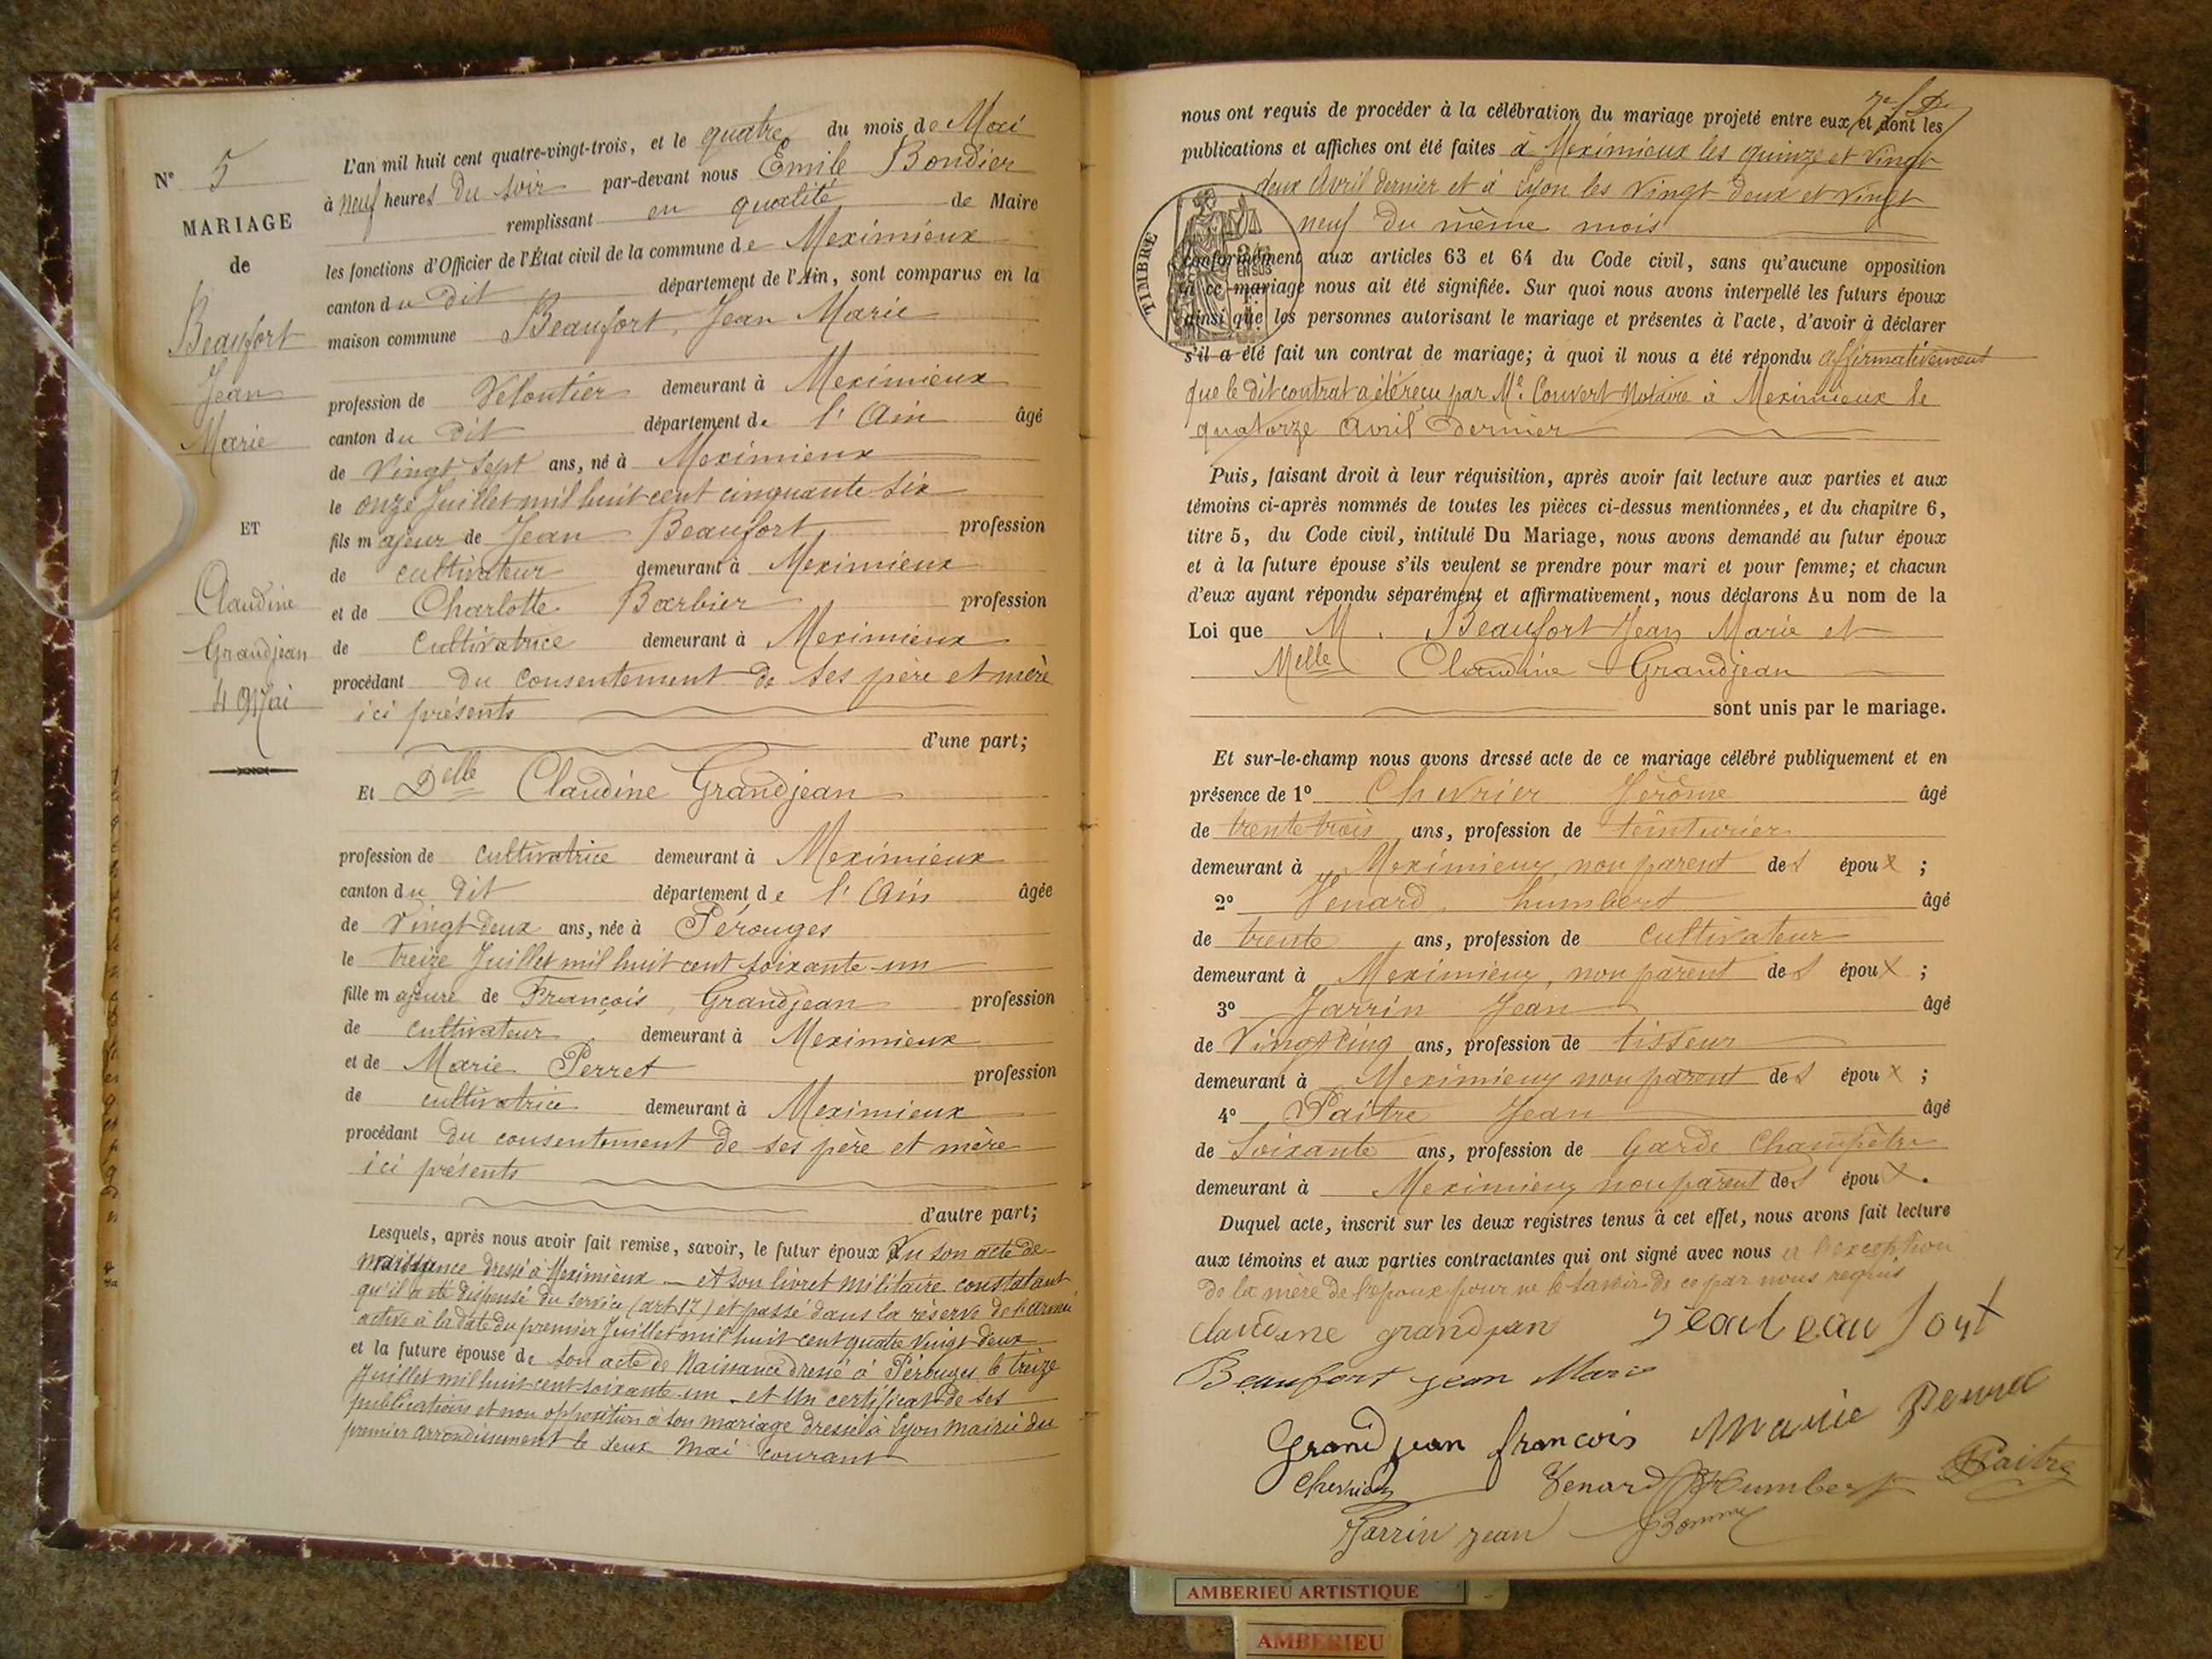 Nº 5
MARIAGE
de
Beaufort
Jean
Marie
ET
Claudine
Grandjean
4 Mai
L'an mil huit cent quatre-vingt-trois, et le quatre du mois de Mai
à neuf heures du soir par-devant nous Emile Bondier
remplissant en qualité de Maire
les fonctions d'Officier de l'État civil de la commune de Meximieux
canton du dit département de l'Ain, sont comparus en la
maison commune Beaufort, Jean Marie
profession de Veloutier demeurant à Meximieux
canton du dit département de l'Ain âgé
de vingt sept ans, né à Meximieux
le onze Juillet mil huit cent cinquante six
fils majeur de Jean Beaufort profession
de cultivateur demeurant à Meximieux
et de Charlotte Barbier profession
de cultivatrice demeurant à Meximieux
procédant du consentement de ses père et mère
ici présents
d'une part;
Et Delle Claudine Grandjean
profession de cultivatrice demeurant à Meximieux
canton du dit département de l'Ain âgée
de vingt-deux ans, née à Pérouges
le treize Juillet mil huit cent soixante-un
fille majeure de François Grandjean profession
de cultivateur demeurant à Meximieux
et de Marie Perret profession
de cultivatrice demeurant à Meximieux
procédant du consentement de ses père et mère
ici présents
d'autre part;
Lesquels, après nous avoir fait remise, savoir, le futur époux Du son acte de
naissance dressé à Meximieux et son livret militaire constatant
qu'il a été dispensé du service (art 17) et passé dans la réserve de l'armée
active à la date du premier Juillet mil huit cent quatre vingt deux
et la future épouse de son acte de Naissance dressé à Pérouges le treize
Juillet mil huit cent soixante-un et Un certificat de ses
publications et non opposition à son mariage dressé à Lyon mairie du
premier arrondissement le deux Mai courant
nous ont requis de procéder à la célébration du mariage projeté entre eux et dont les
publications et affiches ont été faites à Meximieux les quinze et vingt
deux Avril dernier et à Lyon les vingt deux et vingt
neuf du même mois
TIMBRE
EN SUS
conformément aux articles 63 et 64 du Code civil, sans qu'aucune opposition
à ce mariage nous ait été signifiée. Sur quoi nous avons interpellé les futurs époux
ainsi que les personnes autorisant le mariage et présentes à l'acte, d'avoir à déclarer
s'il a été fait un contrat de mariage; à quoi il nous a été répondu affirmativement
que le dit contrat a été reçu par Me Convert Notaire à Meximieux le
quatorze Avril dernier
Puis, faisant droit à leur réquisition, après avoir fait lecture aux parties et aux
témoins ci-après nommés de toutes les pièces ci-dessus mentionnées, et du chapitre 6,
titre 5, du Code civil, intitulé Du Mariage, nous avons demandé au futur époux
et à la future épouse s'ils veulent se prendre pour mari et pour femme; et chacun
d'eux ayant répondu séparément et affirmativement, nous déclarons Au nom de la
Loi que M. Beaufort Jean Marie et
Melle Claudine Grandjean
sont unis par le mariage.
Et sur-le-champ nous avons dressé acte de ce mariage célébré publiquement et en
présence de 1º Chevrier Jérôme âgé
de trente trois ans, profession de teinturier
demeurant à Meximieux non parent des époux ;
2º Venard humbert âgé
de trente ans, profession de cultivateur
demeurant à Meximieux, non parent des époux ;
3º Jarrin Jean âgé
de Vingt cinq ans, profession de tisseur
demeurant à Meximieux non parent des époux ;
4º Paitre Jean âgé
de soixante ans, profession de Garde Champêtre
demeurant à Meximieux non parent des époux.
Duquel acte, inscrit sur les deux registres tenus à cet effet, nous avons fait lecture
aux témoins et aux parties contractantes qui ont signé avec nous à l'exception
de la mère de l'époux pour ne le savoir de ce par nous requis
claudine grandjan Jean beaufort
Beaufort jean Marie
Grandjean françois Marie Perret
Chevrier Venard Humbert Paitre
Jarrin jean
AMBERIEU ARTISTIQUE
AMBERIEU